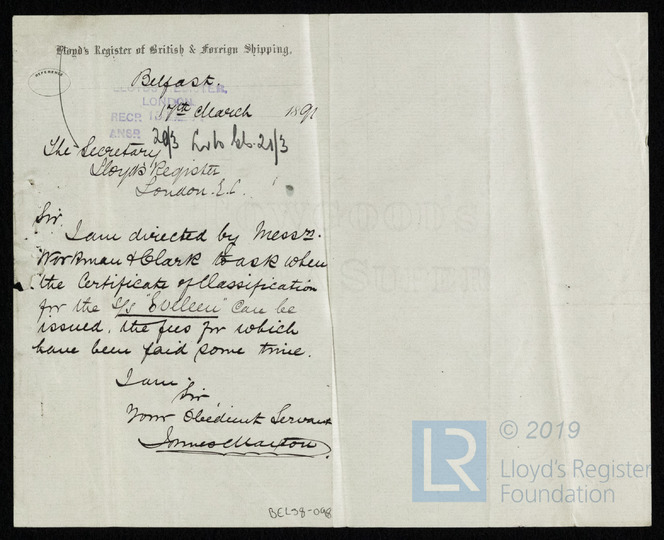 Lloyd's Register of British & Foreign Shipping,
REFERENCE
Belfast.
LLOYD'S REGISTER,
LONDON
17th March 1891
RECR
ANSR 20/3 21/3
The Secretary
Lloyds Register
London. E.C.
Sir
I am directed by Messrs.
Workman & Clark to ask when
the Certificate of Classification
for the S/s "Culleen" can be
issued, the fees for which
have been paid some time.
I am
Sir
Your Obedient Servant
James Maxton
TOWGOOD'S
SUPER
BEL38-098
LR © 2019
Lloyd's Register
Foundation